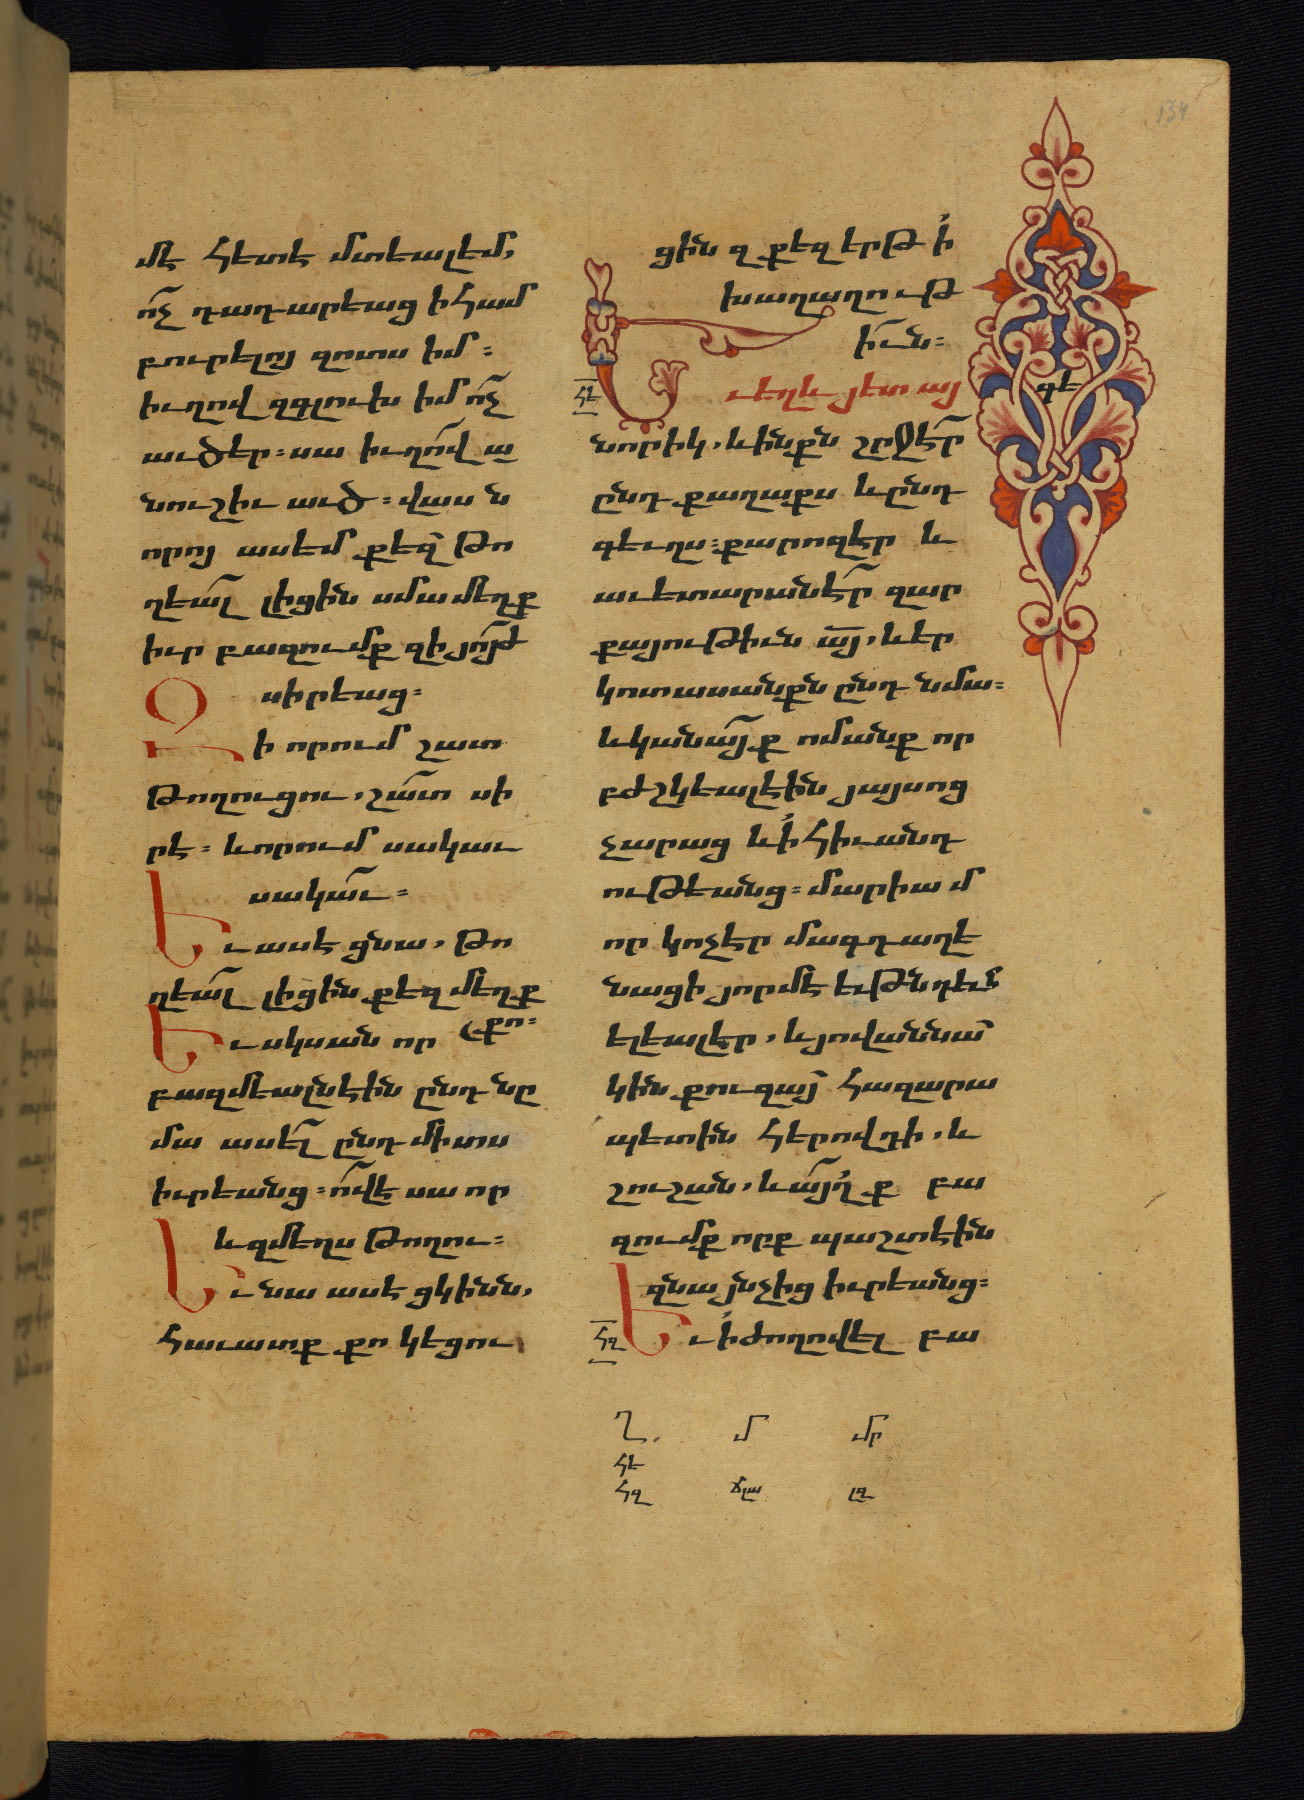 մէ հետէ մտեալեմ,
ո՞չ դադարեաց ի համ
բուրելոյ զոտս իմ ։
իւղով զգլուխս իմ ո՞չ
աւծեր ։ սա իւղո՛վ ա
նուշիւ աւծ ։ վասն
որոյ ասեմ քեզ՝ թո
ղեա՛լ լիցին սմա մեղք
իւր բազումք զի յո՛յժ
սիրեաց ։
Զի որում շատ
թողուցու, շա՛տ սի
րէ ։ և որում սակաւ
սակա՛ւ ։
Եւ ասէ ցնա, թո
ղեա՛լ լիցին քեզ մեղք
քո ։
Եւ սկսան որ
բազմեալն էին ընդ նը
մա ասե՛լ ընդ միտս
իւրեանց ։ ո՞վ է սա որ
և զմեղս թողու ։
Եւ նա ասէ ցկինն,
հաւատք քո կեցու
ցին զքեզ երթ ի՛
խաղաղութ
ի՛ւն ։
գե
հե
Եւ եղև յետ այ
նորիկ, և ինքն շրջէ՛ր
ընդ քաղաքս և ընդ
գեւղս ։ քարոզէր և
աւետարանէ՛ր զար
քայութիւն ա՟յ, և եր
կոտասանքն ընդ նմա ։
և կանա՛յք ոմանք որ
բժշկեալ էին յայսոց
չարաց և ի՛ հիւանդ
ութեանց ։ մարիամ
որ կոչէր մագդաղէ
նացի յորմէ եւթն դեւն
ելեալ էր, և յովաննա՛
կին քուզայ՛ հազարա
պետին հերովդի, և
շուշան, և ա՛յլ ք բա
զումք որք պաշտէին
զնա յնչից իւրեանց ։
հզ
Եւ ի՛ ժողովել բա
Ղ. մ մր
հե
հզ ճլա լզ
134